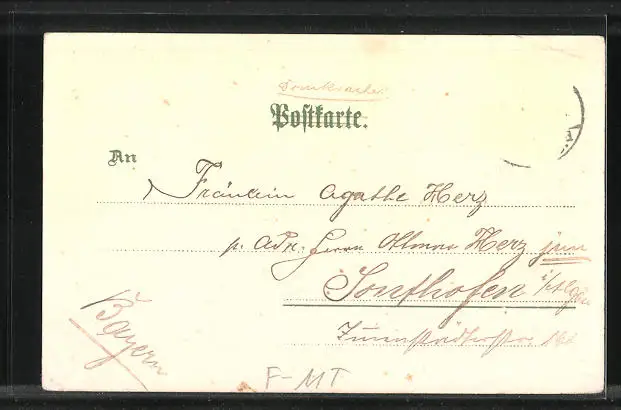 Drucksache.
Postkarte.
An
Fräulein Agathe Herz
p. Adr. Herrn Otmar Herz jun
Sonthofen i/Algäu
Bayern
F-MT